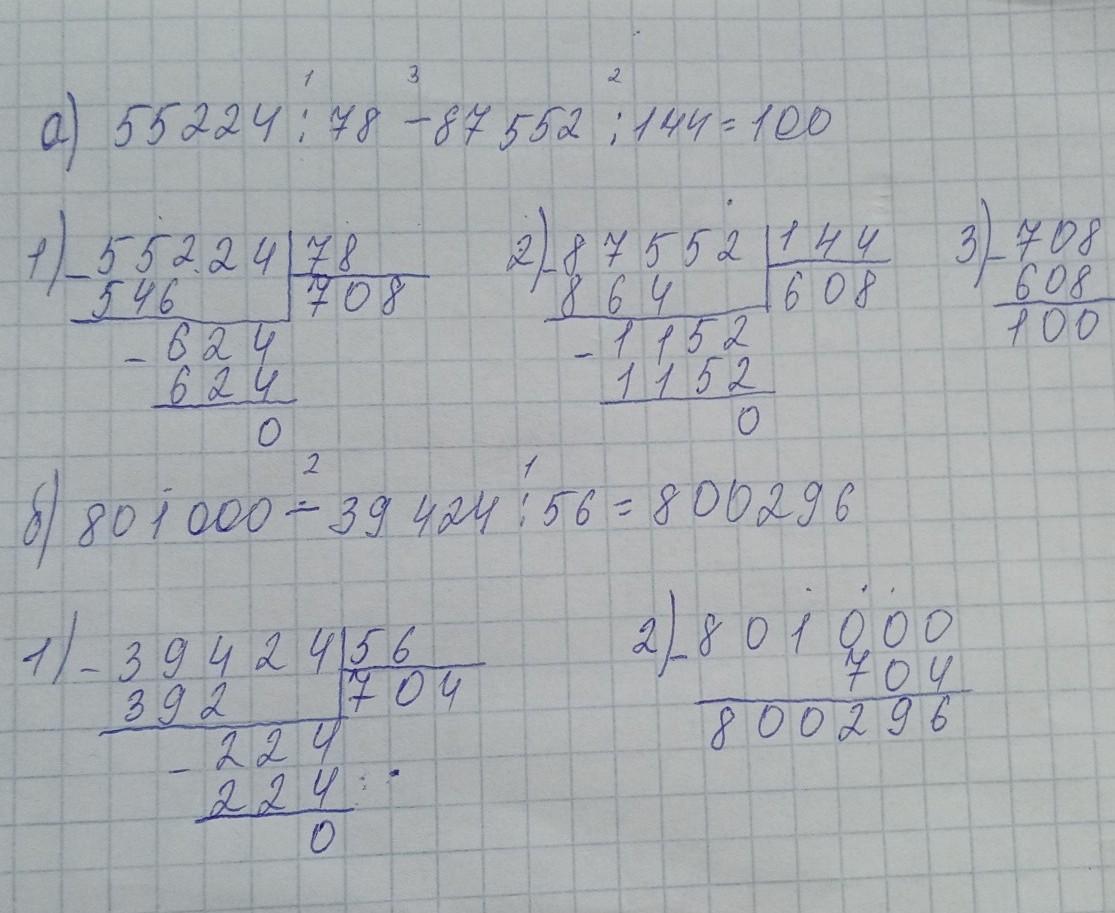 1 3 2
а) 55224 : 78 - 87552 : 144 = 100
1) - 55224 | 78 2) - 87552 | 144 3) - 708
546 708 864 608 608
- 624 - 1152 100
624 1152
0 0
2 1
б) 801000 - 39424 : 56 = 800296
1) - 39424 | 56 2) - 801000
392 704 704
- 224 800296
224
0